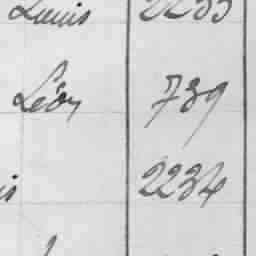 Louis 2233
Léon 739
is 2234